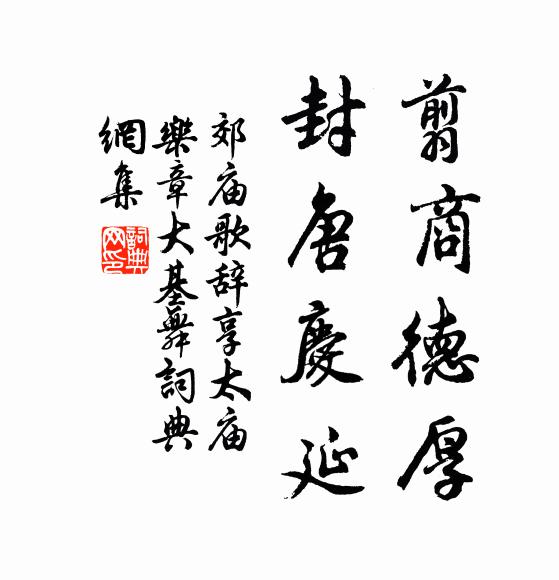 翦商德厚
封唐慶延
郊庙歌辞享太庙
樂章大基舞詞典
網集
詞典
网印